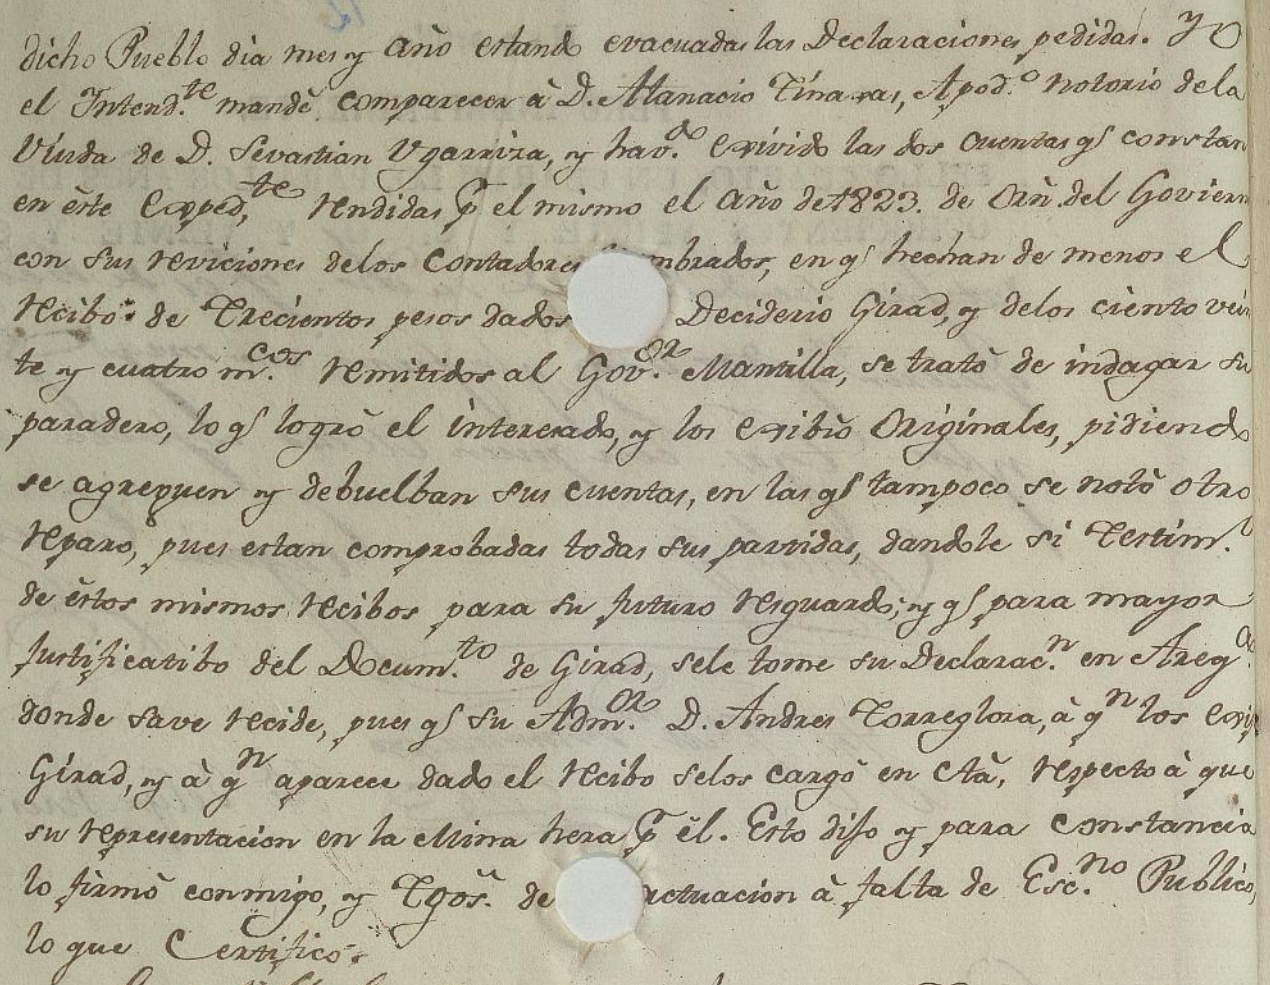 dicho Pueblo dia mes y año estando evacuadas las Declaraciones pedidas. Yo
el Intend.te mandè comparecer à D. Atanacio Tinaxas, Apod.o notorio de la
Viuda de D. Sevastian Ugarriza, y hav.do exivido las dos cuentas q.s constan
en èste Exped.te rendidas p.r el mismo el año de 1823. de Orn. del Goviern
con sus reviciones de los Contadores mbrados, en q.s hechan de menos el
recibo de Trecientos pesos dados Deciderio Girad, y de los ciento vein
te y cuatro m.cos remitidos al Gov.or Mantilla, se tratò de indagar su
paradero, lo q.s logrò el interesado, y los exibiò Originales, pidiendo
se agreguen y debuelban sus cuentas, en las q.s tampoco se notò otro
reparo, pues estan comprobadas todas sus partidas, dandole si Testim.o
de èstos mismos recibos para su futuro resguardo; y q.s para mayor
justificatibo del Docum.to de Girad, sele tome su Declarac.n en Areq.a
donde save recide, pues q.s su Adm.or D. Andres Torreglosa, à q.n los
Girad, y à q.n aparece dado el recibo selos cargò en Ctà, respecto à que
su representacion en la Mina hera p.r èl. Esto dijo y para constancia
lo firmò conmigo, y Tgos. de actuacion à falta de Esc.no Publico,
lo que Certifico.